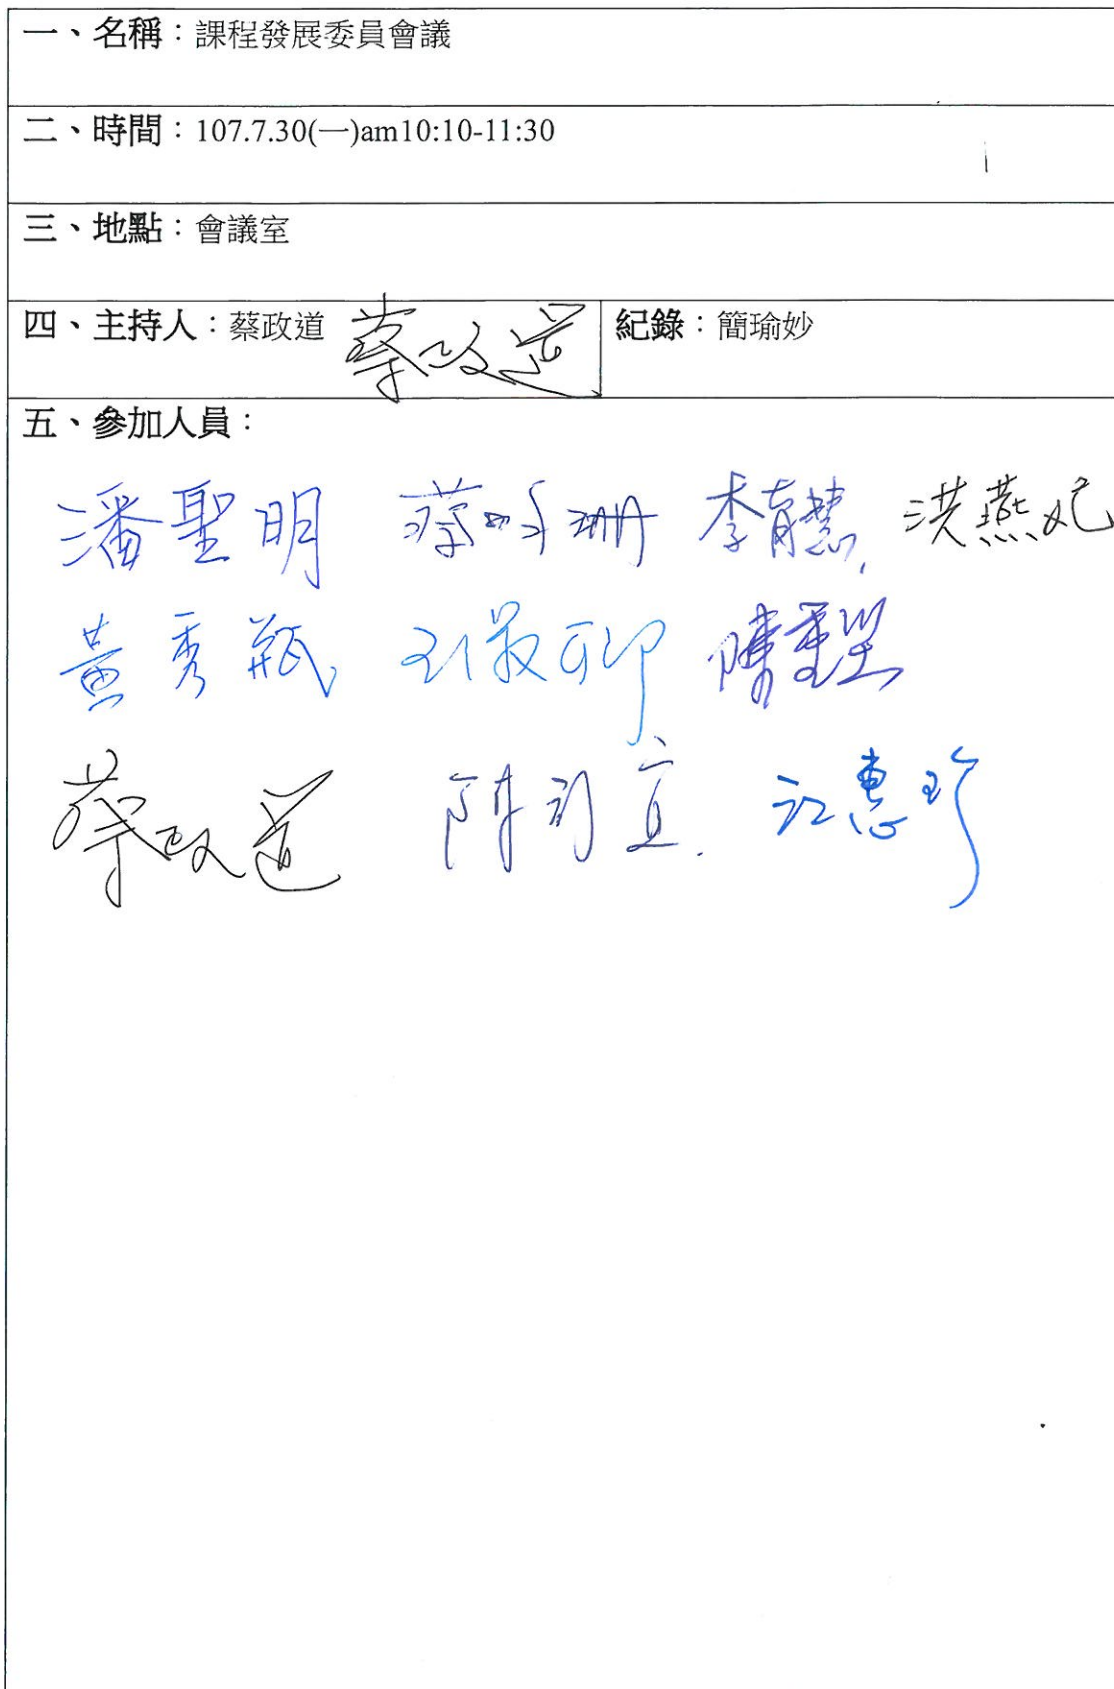 一、名稱：課程發展委員會議
二、時間：107.7.30(一)am10:10-11:30
三、地點：會議室
四、主持人：蔡政道 蔡政道 紀錄：簡瑜妙
五、參加人員：
潘聖明 李育慧 洪燕妃
黃秀瓶
蔡政道 江惠珍